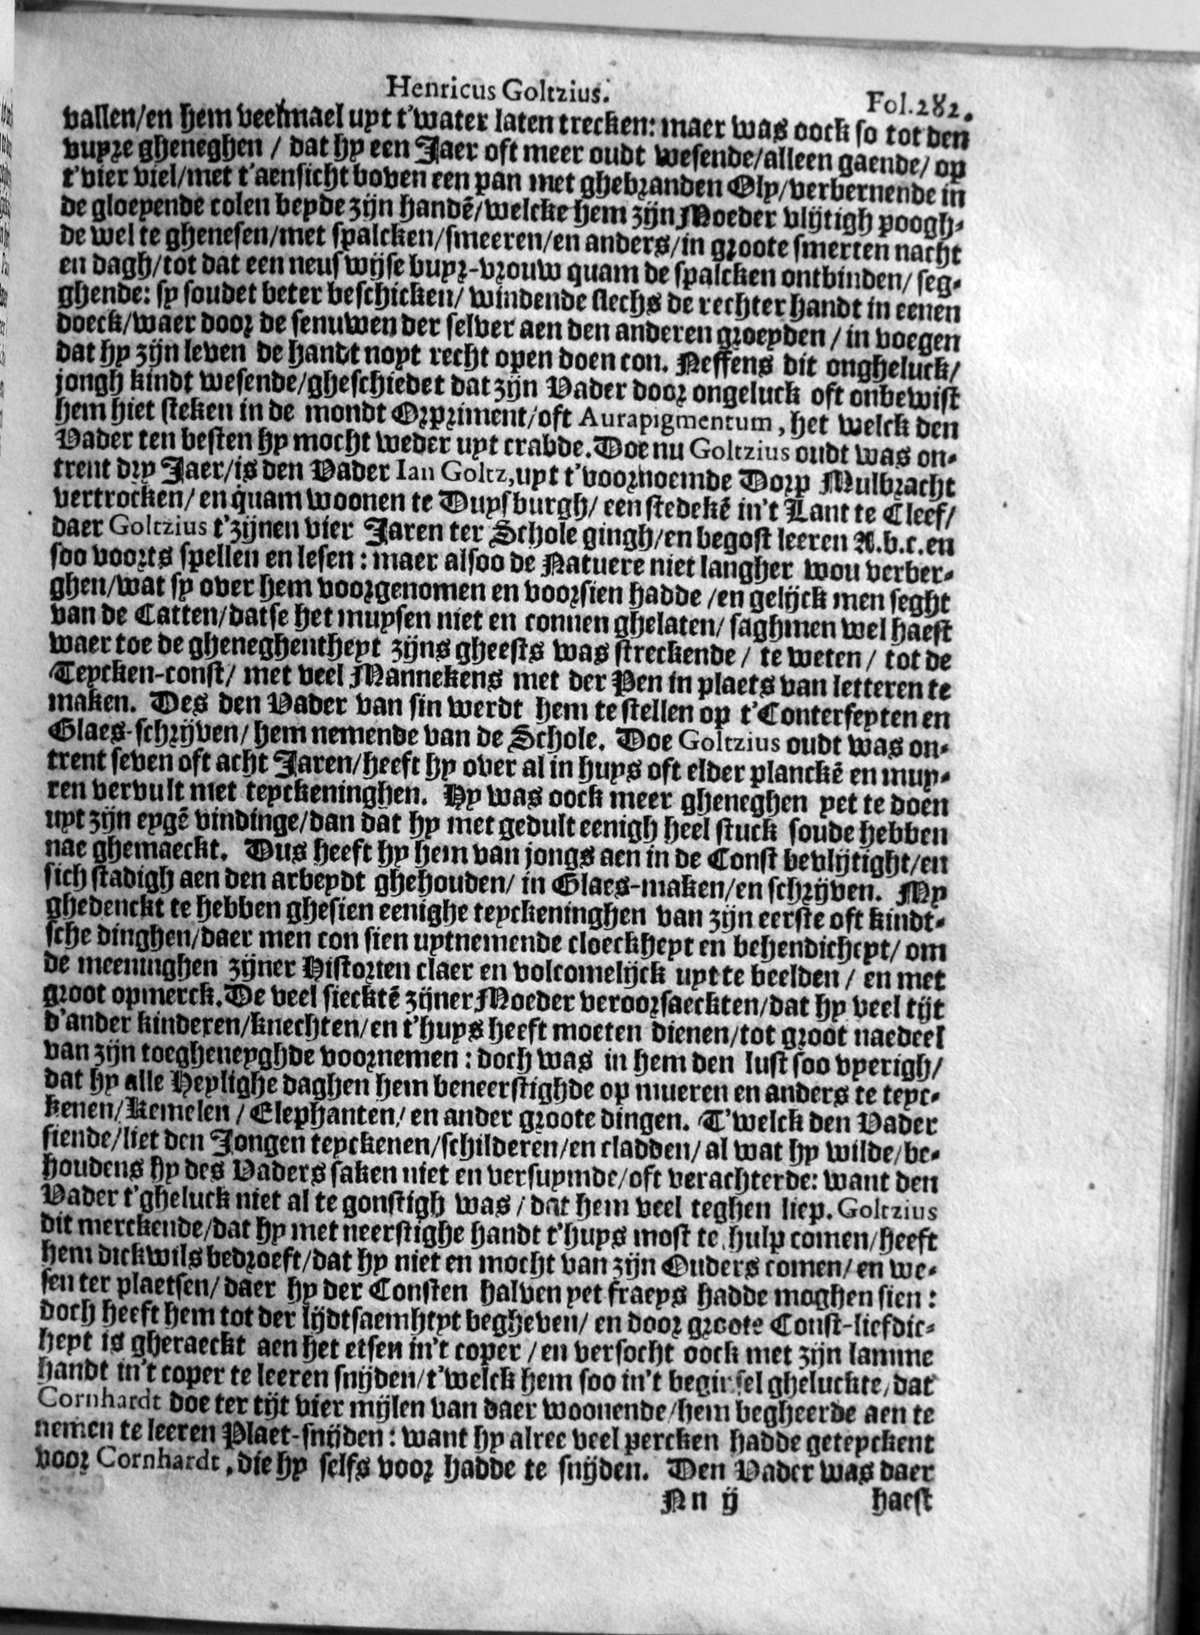 Henricus Goltzius. Fol. 282.
vallen/en hem veelmael uyt t'water laten trecken: maer was oock so tot den
vuyre gheneghen / dat hy een Jaer oft meer oudt wesende/alleen gaende/ op
t'vier viel/met t'aensicht boven een pan met ghebranden Oly/verbernende in
de gloeyende colen beyde zijn handē/welcke hem zijn Moeder vlijtigh poogh-
de wel te ghenesen/met spalcken/smeeren/en anders/in groote smerten nacht
en dagh/tot dat een neus wijse buyr-vrouw quam de spalcken ontbinden/ seg-
ghende: sy soudet beter beschicken/ windende slechs de rechter handt in eenen
doeck/waer door de senuwen der selver aen den anderen groeyden / in voegen
dat hy zijn leven de handt noyt recht open doen con. Neffens dit ongheluck/
jongh kindt wesende/gheschiedet dat zijn Vader door ongeluck oft onbewist
hem hiet steken in de mondt Orpriment/oft Aurapigmentum, het welck den
Vader ten besten hy mocht weder uyt crabde. Doe nu Goltzius oudt was on-
trent dry Jaer/is den Vader Ian Goltz, uyt t'voornoemde Dorp Mulbracht
vertrocken/ en quam woonen te Duysburgh/ een stedekē in't Lant te Cleef/
daer Goltzius t'zijnen vier Jaren ter Schole gingh/en begost leeren A.b.c. en
soo voorts spellen en lesen: maer alsoo de Natuere niet langher wou verber-
ghen/wat sy over hem voorgenomen en voorsien hadde /en gelijck men seght
van de Catten/datse het muysen niet en connen ghelaten/ saghmen wel haest
waer toe de gheneghentheyt zijns gheests was streckende / te weten / tot de
Teycken-const/ met veel Mannekens met der Pen in plaets van letteren te
maken. Des den Vader van sin werdt hem te stellen op t'Conterfeyten en
Glaes-schrijven/ hem nemende van de Schole. Doe Goltzius oudt was on-
trent seven oft acht Jaren/heeft hy over al in huys oft elder planckē en muy-
ren vervult met teyckeninghen. Hy was oock meer gheneghen yet te doen
uyt zijn eygē vindinge/dan dat hy met gedult eenigh heel stuck soude hebben
nae ghemaeckt. Dus heeft hy hem van jongs aen in de Const bevlijtight/en
sich stadigh aen den arbeydt ghehouden/ in Glaes-maken/en schrijven. My
ghedenckt te hebben ghesien eenighe teyckeninghen van zijn eerste oft kindt-
sche dinghen/daer men con sien uytnemende cloeckheyt en behendicheyt/ om
de meeninghen zijner Historien claer en volcomelijck uyt te beelden / en met
groot opmerck. De veel siecktē zijner Moeder veroorsaeckten/dat hy veel tijt
d'ander kinderen/knechten/en t'huys heeft moeten dienen/tot groot naedeel
van zijn toegheneyghde voornemen: doch was in hem den lust soo vyerigh/
dat hy alle Heylighe daghen hem beneerstighde op mueren en anders te teyc-
kenen/Kemelen / Elephanten/ en ander groote dingen. T'welck den Vader
siende/liet den Jongen teyckenen/schilderen/en cladden/ al wat hy wilde/be-
houdens hy des Vaders saken niet en versuymde/oft verachterde: want den
Vader t'gheluck niet al te gonstigh was / dat hem veel teghen liep. Goltzius
dit merckende/dat hy met neerstighe handt t'huys most te hulp comen/heeft
hem dickwils bedroeft/dat hy niet en mocht van zijn Ouders comen/ en we-
sen ter plaetsen/ daer hy der Consten halven yet fraeys hadde moghen sien:
doch heeft hem tot der lijdtsaemheyt begheven/ en door groote Const-liefdic-
heyt is gheraeckt aen het etsen in't coper /en versocht oock met zijn lamme
handt in't coper te leeren snijden/t'welck hem soo in't beginsel gheluckte/dat
Cornhardt doe ter tijt vier mijlen van daer woonende/hem begheerde aen te
nemen te leeren Plaet-snijden: want hy alree veel percken hadde geteyckent
voor Cornhardt, die hy selfs voor hadde te snijden. Den Vader was daer
Nn ij haest